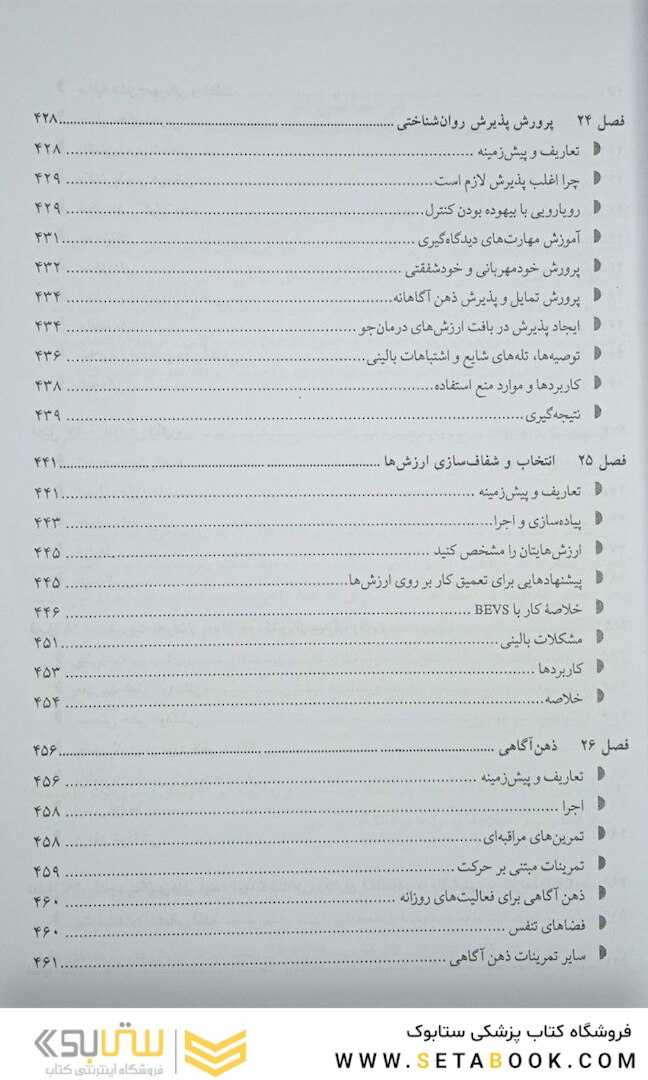 فصل ۲۴ پرورش پذیرش روان‌شناختی ۴۲۸
تعاریف و پیش‌زمینه ۴۲۸
چرا اغلب پذیرش لازم است ۴۲۹
رویارویی با بیهوده بودن کنترل ۴۲۹
آموزش مهارت‌های دیدگاه‌گیری ۴۳۱
پرورش خودمهربانی و خودشفقتی ۴۳۲
پرورش تمایل و پذیرش ذهن آگاهانه ۴۳۴
ایجاد پذیرش در بافت ارزش‌های درمان‌جو ۴۳۴
توصیه‌ها، تله‌های شایع و اشتباهات بالینی ۴۳۶
کاربردها و موارد منع استفاده ۴۳۸
نتیجه‌گیری ۴۳۹
فصل ۲۵ انتخاب و شفاف‌سازی ارزش‌ها ۴۴۱
تعاریف و پیش‌زمینه ۴۴۱
پیاده‌سازی و اجرا ۴۴۳
ارزش‌هایتان را مشخص کنید ۴۴۵
پیشنهادهایی برای تعمیق کار بر روی ارزش‌ها ۴۴۵
خلاصهٔ کار با BEVS ۴۴۶
مشکلات بالینی ۴۵۱
کاربردها ۴۵۳
خلاصه ۴۵۴
فصل ۲۶ ذهن‌آگاهی ۴۵۶
تعاریف و پیش‌زمینه ۴۵۶
اجرا ۴۵۸
تمرین‌های مراقبه‌ای ۴۵۸
تمرینات مبتنی بر حرکت ۴۵۹
ذهن آگاهی برای فعالیت‌های روزانه ۴۶۰
فضاهای تنفس ۴۶۰
سایر تمرینات ذهن آگاهی ۴۶۱
فروشگاه کتاب پزشکی ستابوک
WWW.SETABOOK.COM
ستابوک
فروشگاه اینترنتی کتاب